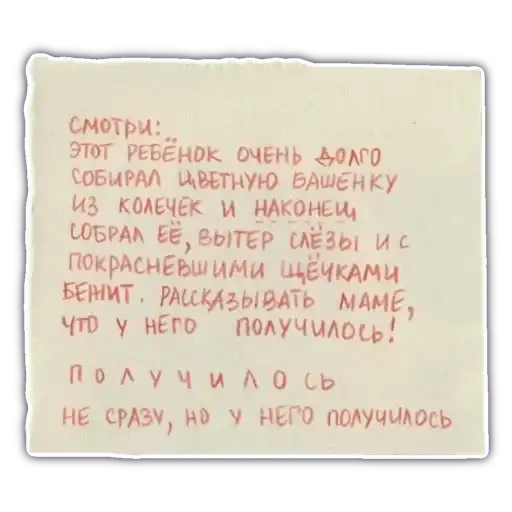 СМОТРИ:
ЭТОТ РЕБЁНОК ОЧЕНЬ ДОЛГО
СОБИРАЛ ЦВЕТНУЮ БАШЕНКУ
ИЗ КОЛЕЧЕК И НАКОНЕЦ
СОБРАЛ ЕЁ, ВЫТЕР СЛЁЗЫ И С
ПОКРАСНЕВШИМИ ЩЁЧКАМИ
БЕЖИТ. РАССКАЗЫВАТЬ МАМЕ,
ЧТО У НЕГО ПОЛУЧИЛОСЬ!
ПОЛУЧИЛОСЬ
НЕ СРАЗУ, НО У НЕГО ПОЛУЧИЛОСЬ